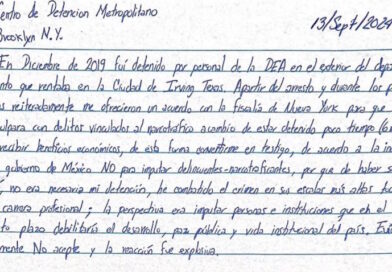 entro de Detencion Metropolitano
Brooklyn N.Y.
13/Sept/2024
En Diciembre de 2019 fui detenido por personal de la DEA en el exterior del depa
nto que rentaba en la Ciudad de Irving Texas. Apartir del arresto y durante los p
s reiteradamente me ofrecieron un acuerdo con la fiscalía de Nueva York para que
ulpara con delitos vinculados al narcotrafico a cambio de estar detenido poco tiempo
recibir beneficios económicos, de esta forma convertirme en testigo, de acuerdo a la in
gobierno de México NO para imputar delincuentes-narcotraficantes, por que de haber s
, no era necesaria mi detención, he combatido el crimen en su escalas más altas
carrera profesional; la perspectiva era imputar personas e instituciones que en el
to plazo debilitaría el desarrollo, paz pública y vida institucional del país.
mente No acepte y la reacción fue explosiva.